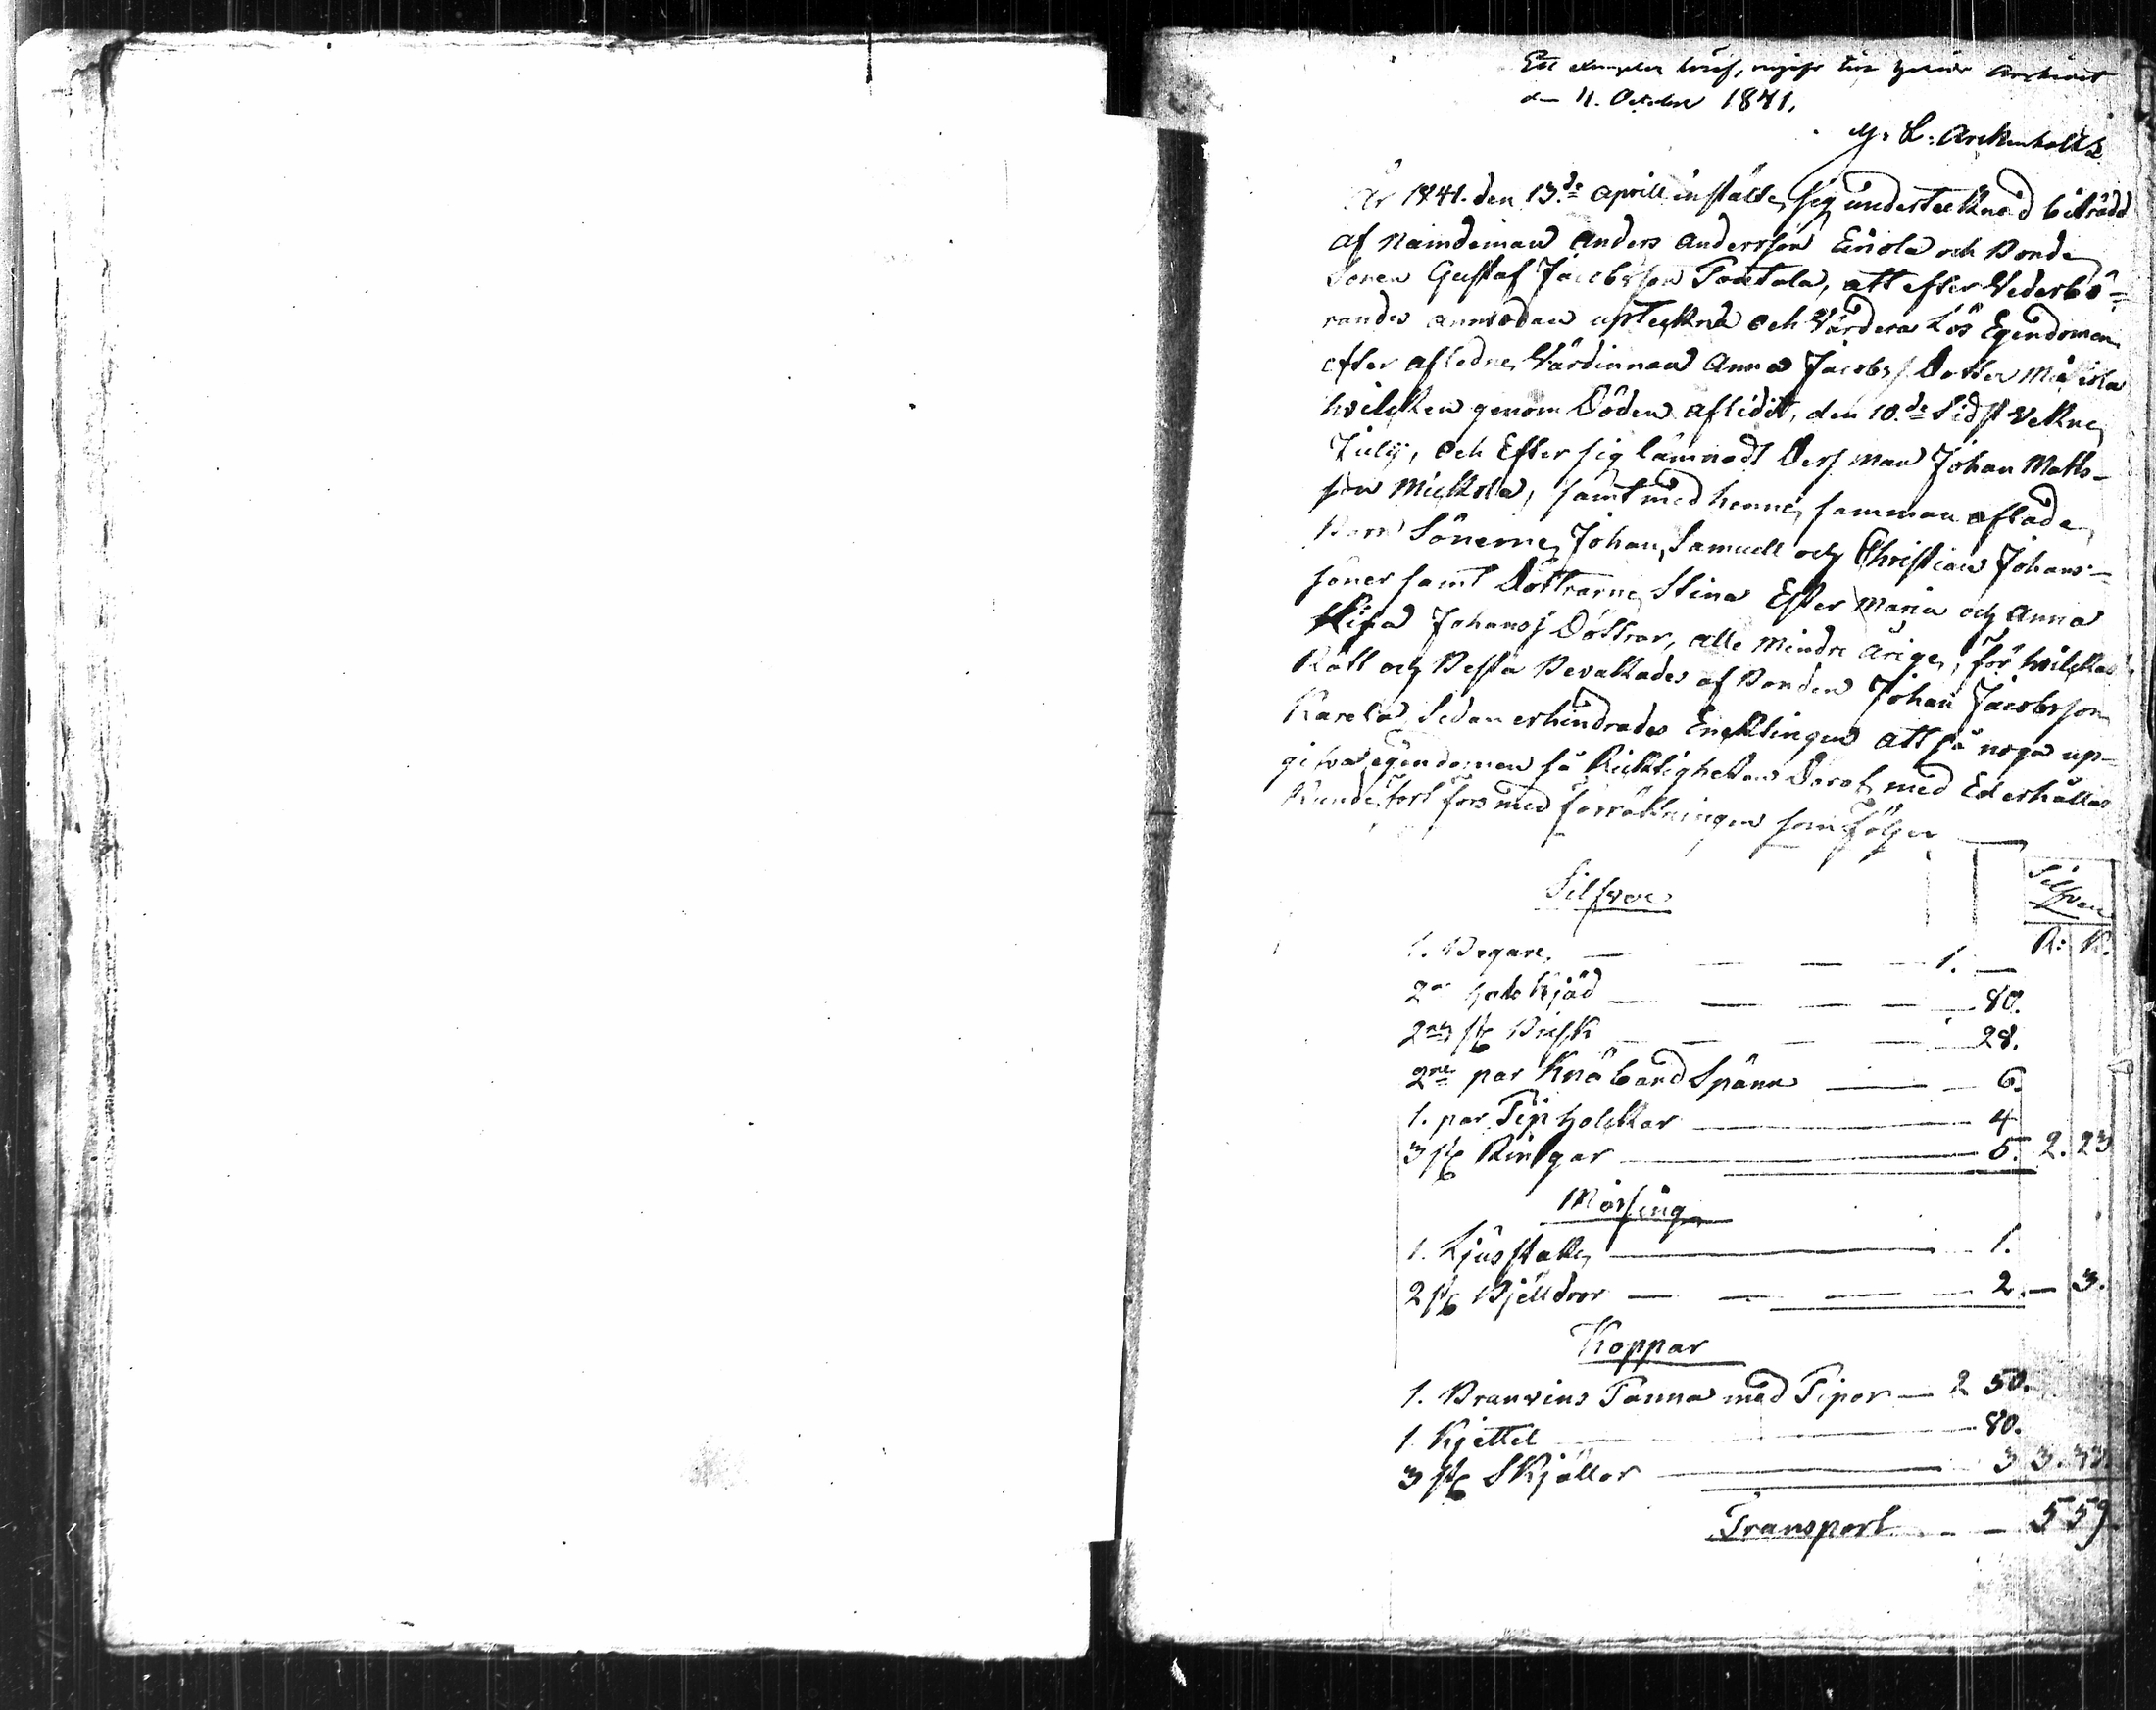 d. 11. October 1841.
G. L. Arckenholtz
År 1841. den 13de Aprill instälte sig undertecknad biträdd
af Nämdeman Anders Andersson Einola och Bonde
Sonen Gustaf Jacobsson Pontala, att efter Vederbö-
randes anmodan upteckna och Värdera Lös Egendomen
efter afledne Värdinnan Anna Jacobs Dotter
hvilcken genom Döden aflidit, den 10de Sidst Vekne
July, och Efter sig lämnadt Dess man Johan Matts-
son Mickola, samt med henne samman aflade
Barn Sönerne Johan, Samuell och Christian Johans-
söner samt Döttrarne Stina Ester Maria och Anna
Lisa Johans Döttrar, alle Mindre årige, för hvilckas
Rätt och Besta Bevakades af Bonden Johan Jacobsson
Karela Sedan erhindrades Encklingen att så noga up-
gifva egendomen så Ricktigheten Deraf med Ed erhållas
Kunde, fort fors med förrättningen som Följer
Silfver
Silfver
R: K.
1. Begare. — — — 1. —
2ne Hals Kjäd — — — 80.
2ne st Brisk — — — 28.
2ne par Knäband Spänn — — 6.
1. par Holckar — 4
3 st Ringar — 5. 2. 23
Mässing
1. Ljusstake — 1.
2 st Bjelldror — — — 2. — 3.
Koppar
1. Branvins Panna med Pipor — 2 50.
1 Kjettel — 80.
3 st Skjällor — 3 3. 33.
Transport — — 5 59